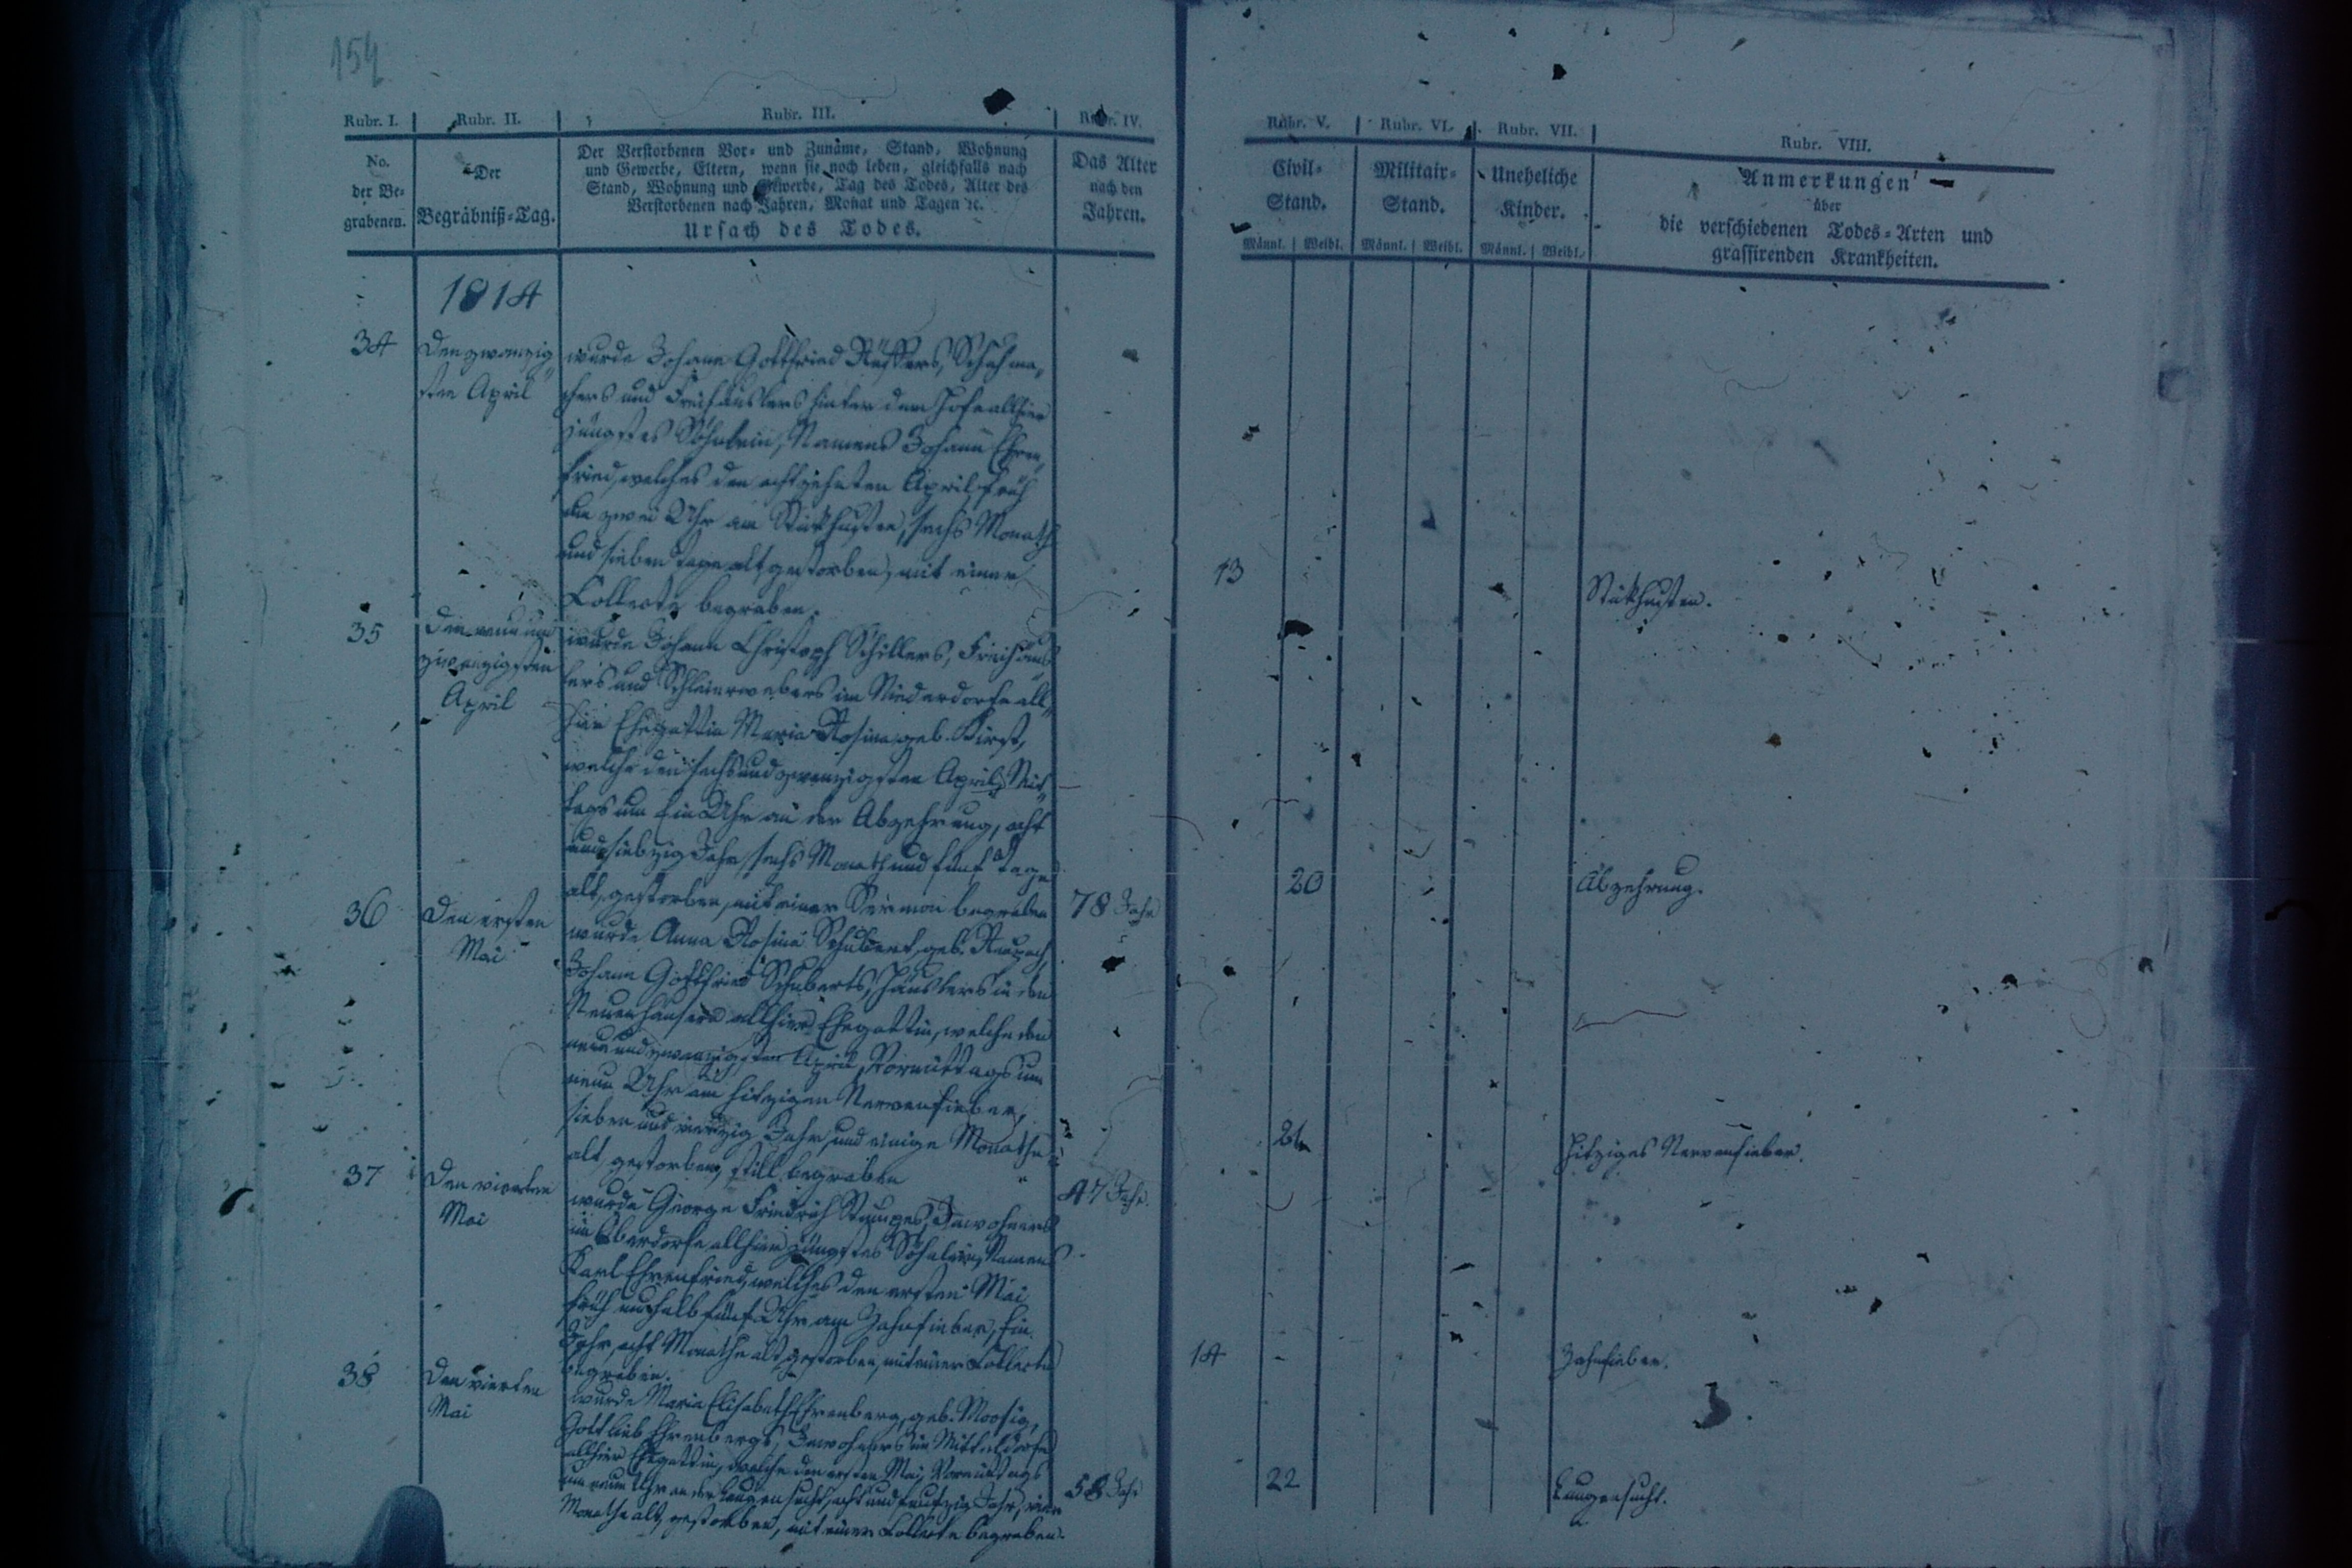 154
Rubr. I. Rubr. II. Rubr. III. Rubr. IV. Rubr. V. Rubr. VI. Rubr. VII. Rubr. VIII.
No.
der Be-
grabenen.
Der
Begräbniß-Tag.
Der Verstorbenen Vor- und Zuname, Stand, Wohnung
und Gewerbe, Eltern, wenn sie noch leben, gleichfalls nach
Stand, Wohnung und Gewerbe, Tag des Todes, Alter des
Verstorbenen nach Jahren, Monat und Tagen ꝛc.
Ursach des Todes.
Das Alter
nach den
Jahren.
Civil-
Stand.
Männl. Weibl.
Militair-
Stand.
Männl. Weibl.
Uneheliche
Kinder.
Männl. Weibl.
Anmerkungen
über
die verschiedenen Todes-Arten und
grassirenden Krankheiten.
1814
34
Den zwanzig
sten April
wurde Johann Gottfried Schuhma
chers und Freihäuslers hinter dem Hofe allhier
jüngstes Söhnlein, Namens Johann Ehren
fried, welches den achtzehnten April, früh
um zwei Uhr am Stickhusten, sechs Monath
und sieben Tage alt gestorben, mit einer
Collecte begraben.
13
Stickhusten.
35
Den neun und
zwanzigsten
April
wurde Johann Christoph Schillers, Freihäus
lers und Schleierwebers im Niederdorfe all
hier Ehegattin Maria Rosina geb.
welche den sechsundzwanzigsten April, Mit
tags um Ein Uhr an der Abzehrung, acht
und siebzig Jahr sechs Monath und fünf Tage
alt, gestorben, mit einer Sermon begraben
78 Jahr
20
Abzehrung.
36
Den ersten
Mai
wurde Anna Rosina Schubert, geb.
Johann Gottfried Schuberts, Häuslers in den
Neuenhäusern allhier Ehegattin, welche den
neun und zwanzigsten April, Vormittags um
neun Uhr am hitzigen Nervenfieber,
sieben und vierzig Jahr und einige Monathe
alt, gestorben, still begraben
47 Jahr.
21
hitziges Nervenfieber.
37
Den vierten
Mai
wurde George Friedrich Inwohners
im Oberdorfe allhier jüngstes Söhnlein, Namens
Karl Ehrenfried, welches den ersten Mai
früh um halb fünf Uhr am Zahnfieber, Ein
Jahr, acht Monathe alt gestorben, mit einer Collecte
begraben.
14
Zahnfieber.
38
Den vierten
Mai
wurde Maria Elisabeth Ehrenberg, geb. Moosig,
Gottlieb Ehrenbergs, Inwohners im Mitteldorfe
allhier Ehegattin, welche den ersten Mai, Vormittags
um neun Uhr an der Lungensucht, acht und funfzig Jahr, vier
Monathe alt, gestorben, mit einer Collecte begraben.
58 Jahr
22
Lungensucht.